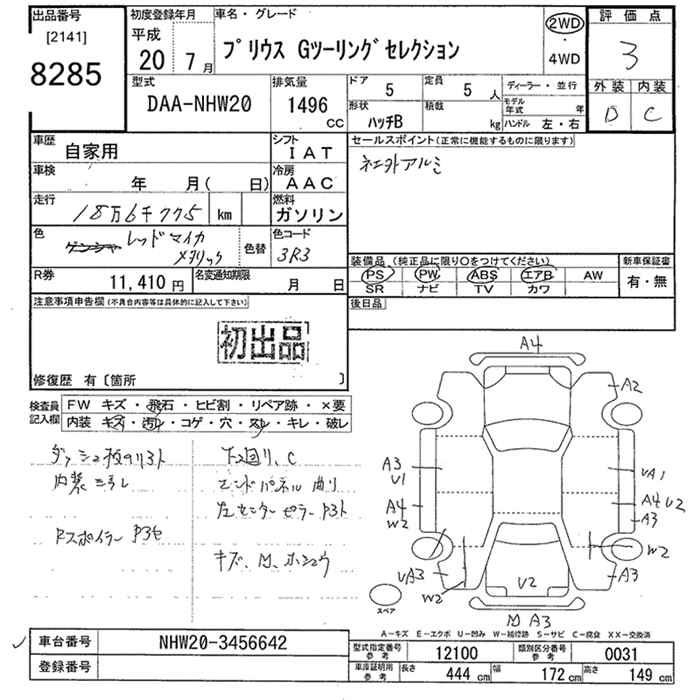 出品番号
[2141]
8285
初度登録年月
平成
20 7月
車名・グレード
プリウス Gツーリングセレクション
2WD
・
4WD
評価点
3
外装 内装
D C
型式
DAA-NHW20
排気量
1496
CC
ドア
5
定員
5 人
形状
ハッチB
積載
kg
ディーラー・並行
モデル年式 年
ハンドル 左・右
車歴
自家用
シフト
IAT
車検
年 月( 日)
冷房
AAC
走行
18万6千775 km
燃料
ガソリン
色
レッドマイカ
メタリック
色替
色コード
3R3
R券
11,410 円
名変通知期限
月 日
セールスポイント(正常に機能するものに限ります)
アルミ
装備品 (純正品に限り〇をつけてください)
PS PW ABS エアB AW
SR ナビ TV カワ
新車保証書
有・無
後日品
注意事項申告欄(不具合内容等は具体的に記入して下さい)
初出品
修復歴 有〔箇所 〕
検査員
記入欄
FW キズ・飛石・ヒビ割・リペア跡・×要
内装・キズ・汚れ・コゲ・穴・スレ・キレ・破レ
ダッシュ板
下廻り、C
エンドパネル曲り
左センターピラー
Rスポイラー
キズ、
A4
A2
A3
U1
A4
W2
UA1
A4 U2
A3
W2
A3
UA3
W2
U2
A3
スペア
A-キズ E-エクボ U-凹み W-補修跡 S-サビ C-腐食 XX-交換済
車台番号
NHW20-3456642
登録番号
型式指定番号
参考
12100
類別区分番号
参考
0031
車庫証明用
参考
長さ 444 cm 幅 172 cm 高さ 149 cm